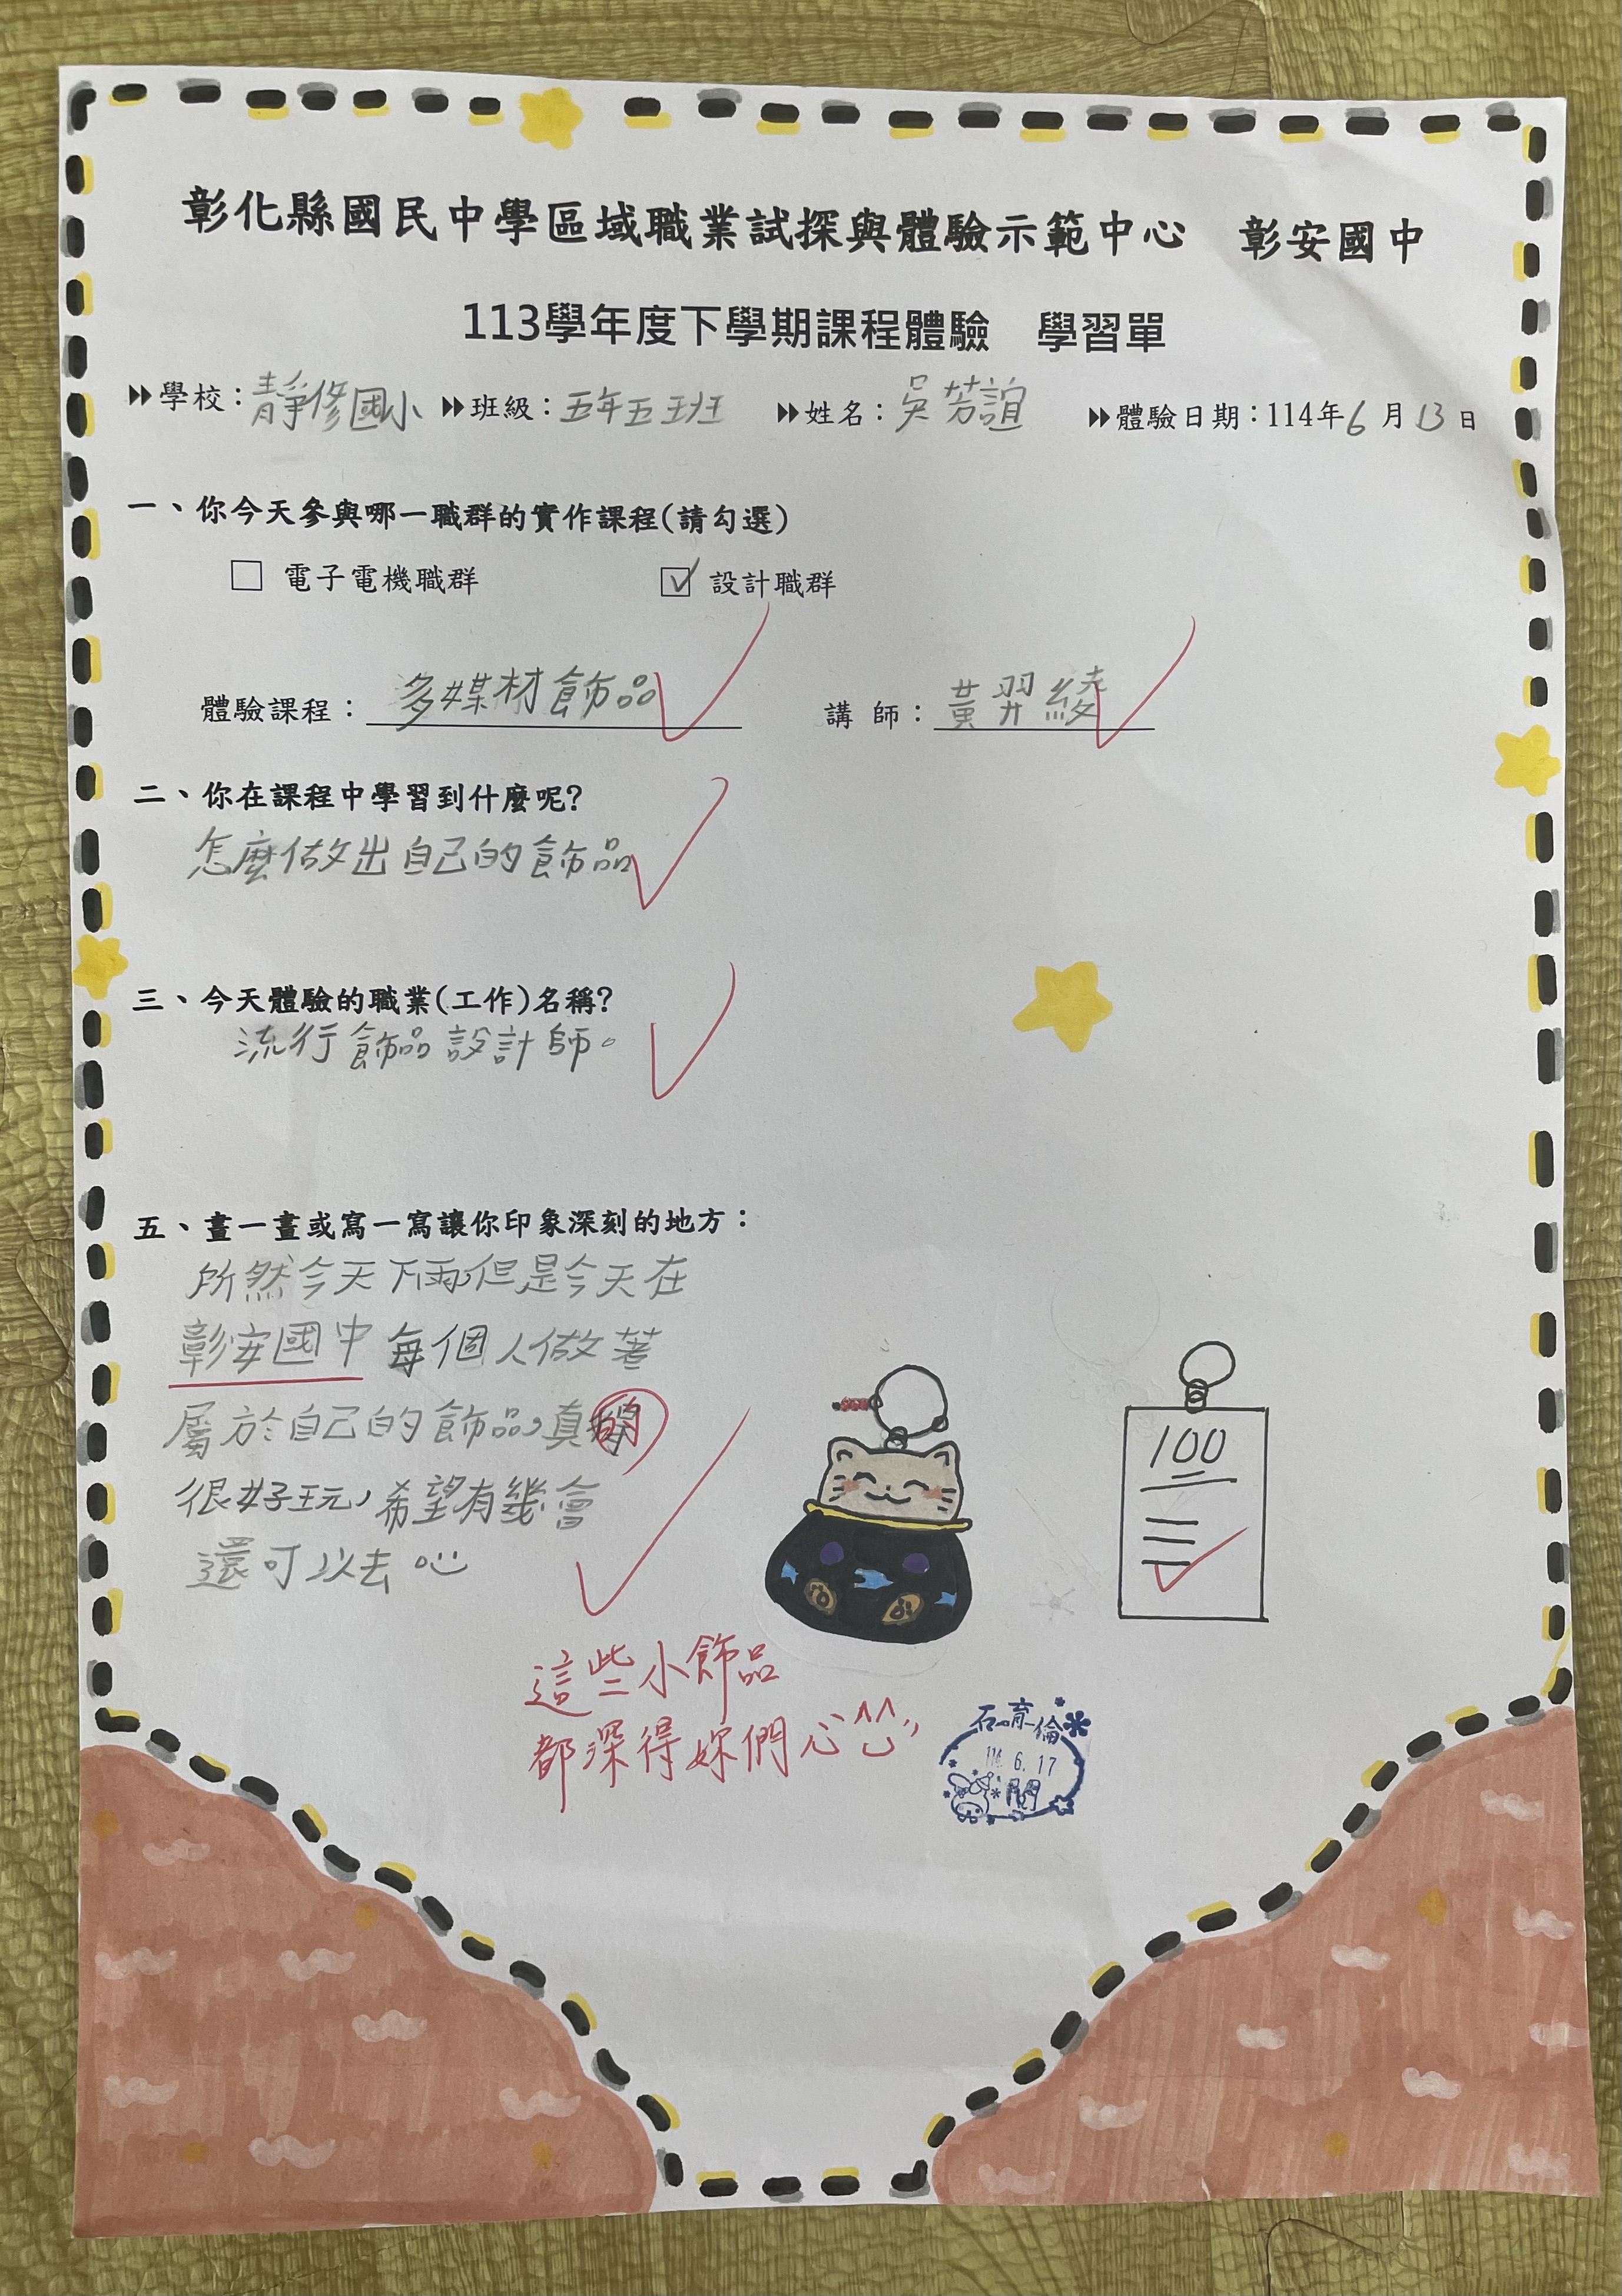 彰化縣國民中學區域職業試探與體驗示範中心 彰安國中
113學年度下學期課程體驗 學習單
學校：靜修國小 班級：五年五班 姓名：吳芳誼 體驗日期：114年6月13日
一、你今天參與哪一職群的實作課程(請勾選)
□ 電子電機職群 ☑ 設計職群
體驗課程：多媒材飾品 講師：黃羿綾
二、你在課程中學習到什麼呢?
怎麼做出自己的飾品
三、今天體驗的職業(工作)名稱?
流行飾品設計師。
五、畫一畫或寫一寫讓你印象深刻的地方：
所然今天下雨,但是今天在
彰安國中每個人做著
屬於自己的飾品,真的
很好玩,希望有幾會
還可以去
100
這些小飾品
都深得妳們心^^
石育倫
114. 6. 17
閱